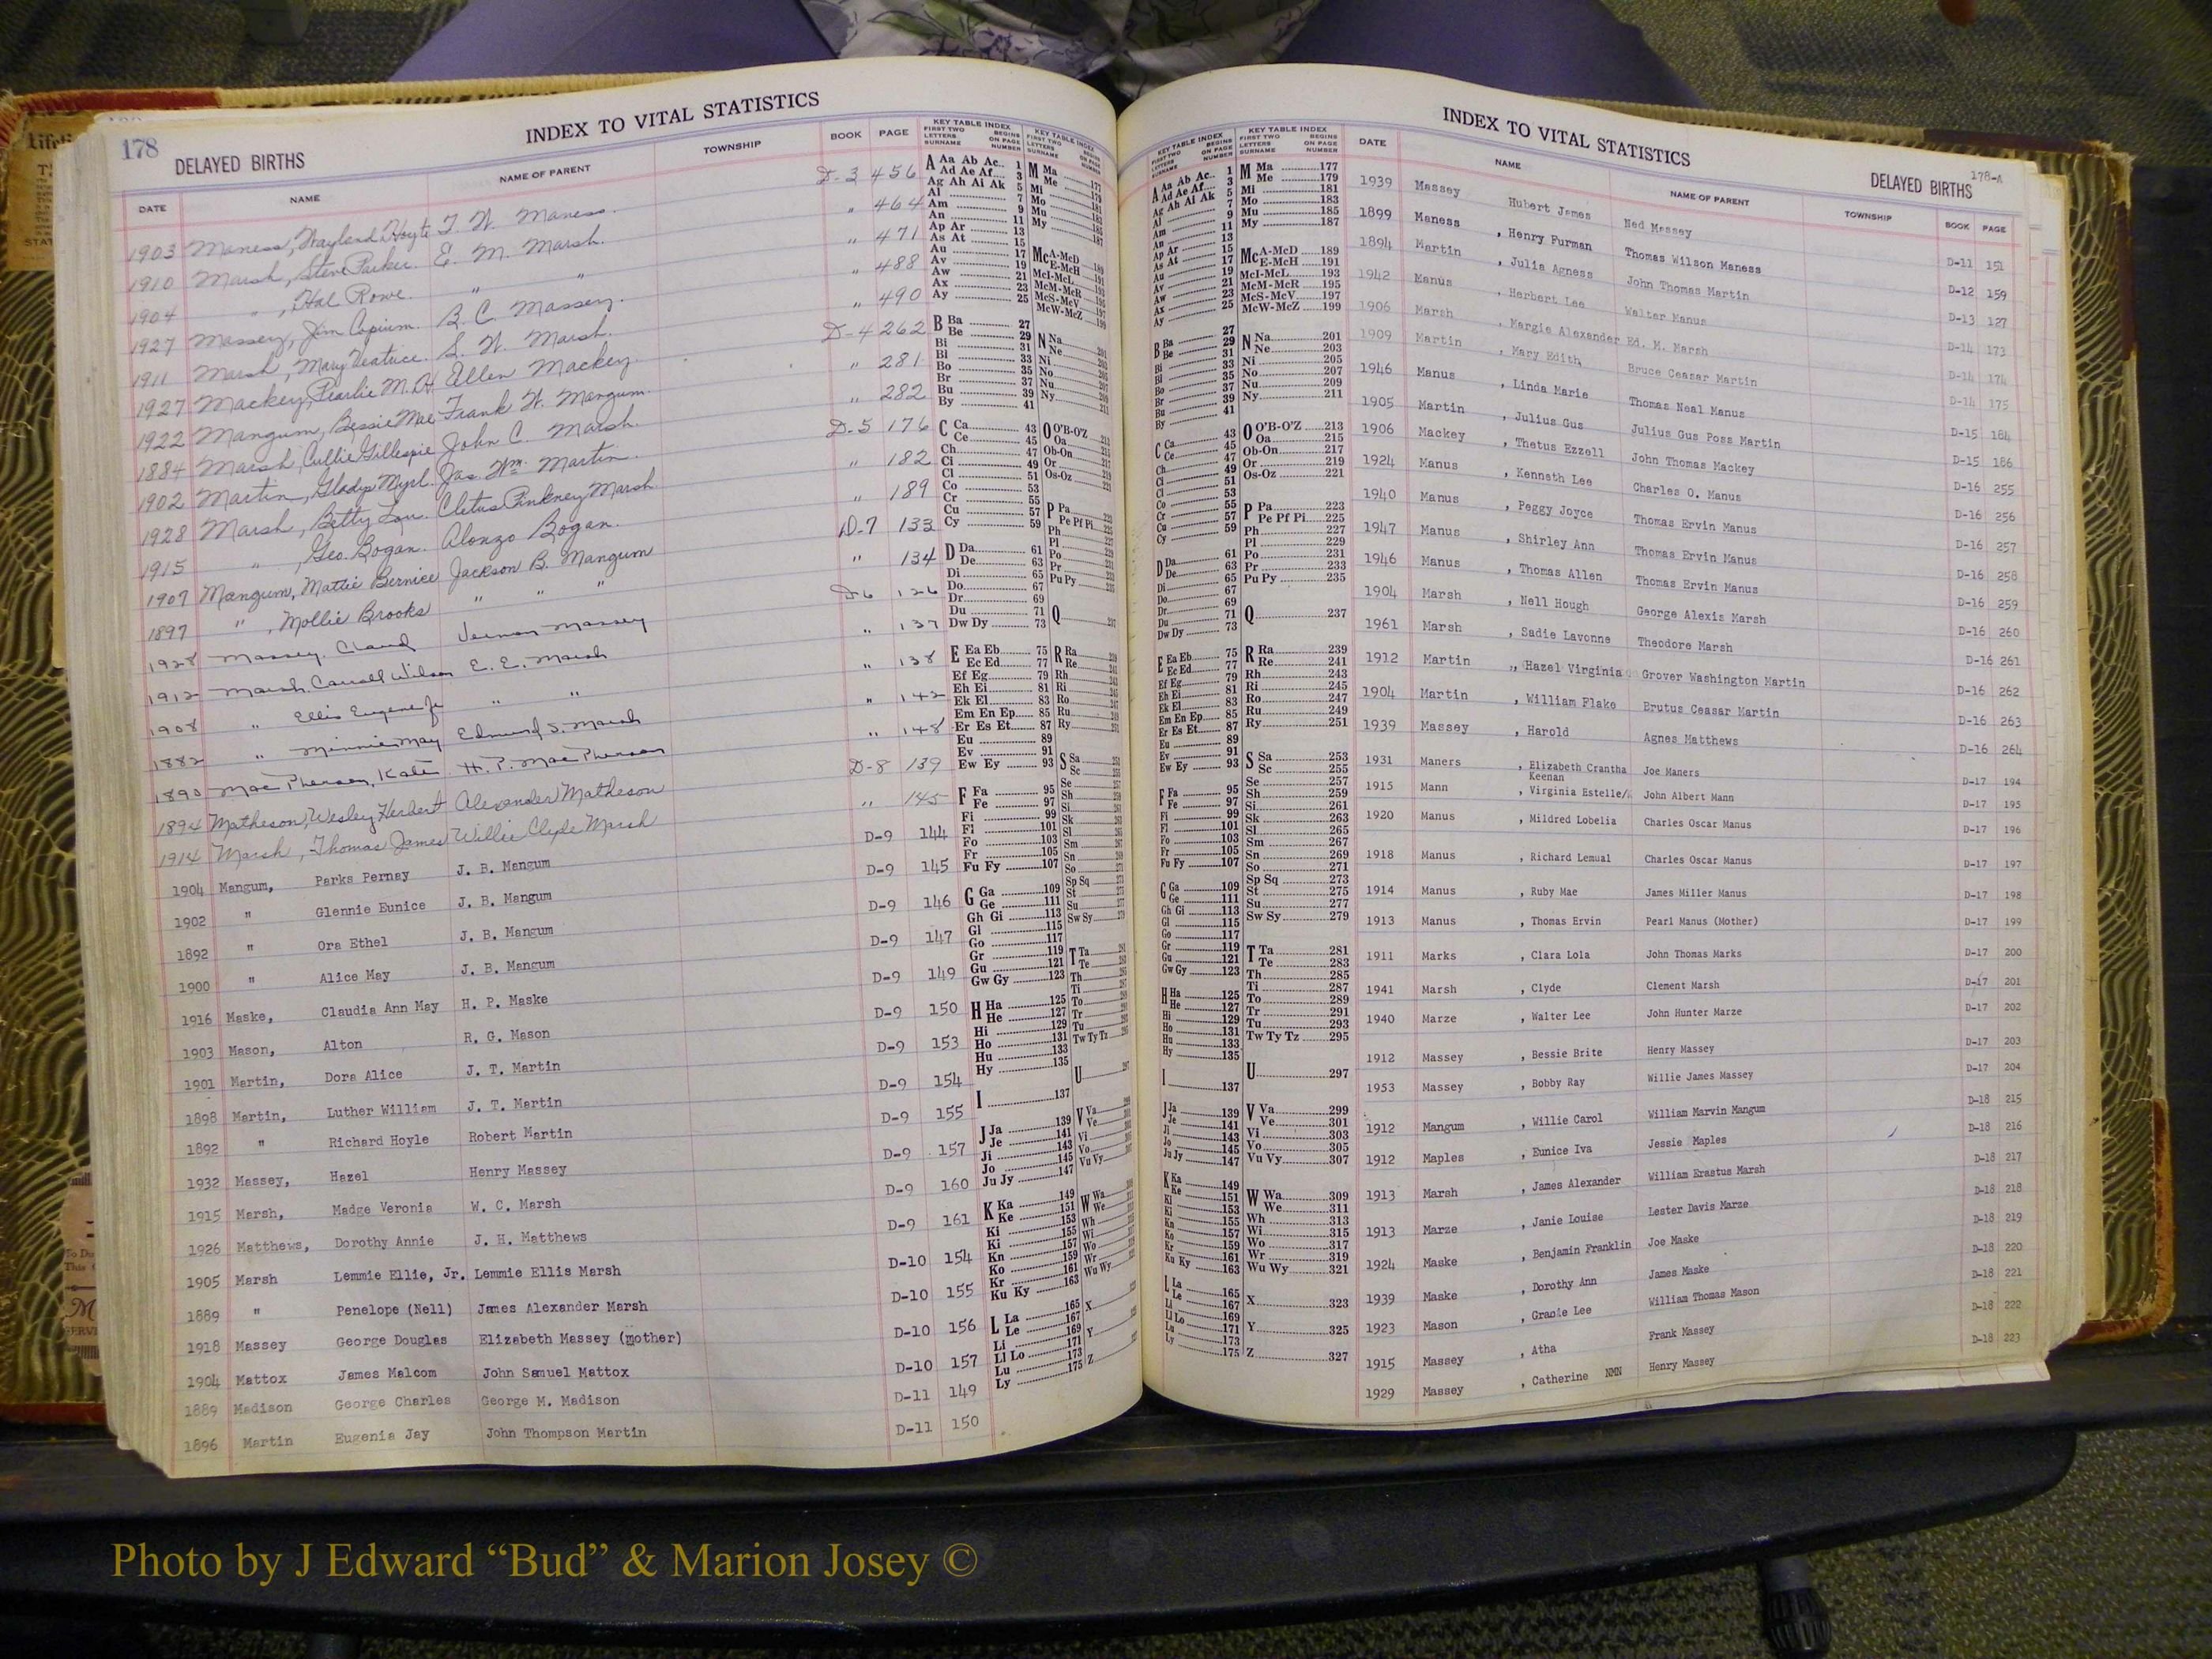 178
INDEX TO VITAL STATISTICS
DELAYED BIRTHS
DATE NAME NAME OF PARENT TOWNSHIP BOOK PAGE
1903 Maness, Wayland Hoyte T. W. Maness. D-3 456
1910 Marsh, Steve Parker. E. M. Marsh. " 464
1904 " , Hal Rowe. " " " 471
1927 Massey, Jim B. C. Massey. " 488
1911 Marsh, Mary Beatrice. S. W. Marsh. " 490
1927 Mackey, Pearlie M. Ellen Mackey. D-4 262
1922 Mangum, Bessie Mae Frank W. Mangum. " 281
1884 Marsh, Cullie Gillespie John C. Marsh. " 282
1902 Martin, Gladys Myrl. Jas. Wm. Martin. D-5 176
1928 Marsh, Betty Lou. Cletus Pinkney Marsh. " 182
1915 " , Geo. Bogan. Alonzo Bogan. " 189
1907 Mangum, Mattie Bernice Jackson B. Mangum D-7 133
1897 " , Mollie Brooks " " " " 134
1928 Massey, Claud Vernon Massey D-6 126
1912 Marsh, Carroll Wilson E. E. Marsh " 137
1908 " Ellis Eugene Jr " " " 138
1882 " Minnie May Edmund S. Marsh " 142
1890 MacPherson, Kate H. P. MacPherson " 148
1894 Matheson, Wesley Herbert Alexander Matheson D-8 139
1914 Marsh, Thomas James Willie Clyde Marsh " 145
1904 Mangum, Parks Pernay J. B. Mangum D-9 144
1902 " Glennie Eunice J. B. Mangum D-9 145
1892 " Ora Ethel J. B. Mangum D-9 146
1900 " Alice May J. B. Mangum D-9 147
1916 Maske, Claudia Ann May H. P. Maske D-9 149
1903 Mason, Alton R. G. Mason D-9 150
1901 Martin, Dora Alice J. T. Martin D-9 153
1898 Martin, Luther William J. T. Martin D-9 154
1892 " Richard Hoyle Robert Martin D-9 155
1932 Massey, Hazel Henry Massey D-9 157
1915 Marsh, Madge Veronia W. C. Marsh D-9 160
1926 Matthews, Dorothy Annie J. H. Matthews D-9 161
1905 Marsh Lemmie Ellie, Jr. Lemmie Ellis Marsh D-10 154
1889 " Penelope (Nell) James Alexander Marsh D-10 155
1918 Massey George Douglas Elizabeth Massey (mother) D-10 156
1904 Mattox James Malcom John Samuel Mattox D-10 157
1889 Madison George Charles George M. Madison D-11 149
1896 Martin Eugenia Jay John Thompson Martin D-11 150
KEY TABLE INDEX
FIRST TWO LETTERS SURNAME BEGINS ON PAGE NUMBER
A Aa Ab Ac.. 1
Ad Ae Af.... 3
Ag Ah Ai Ak 5
Al 7
Am 9
An 11
Ap Ar 13
As At 15
Au 17
Av 19
Aw 21
Ax 23
Ay 25
B Ba 27
Be 29
Bi 31
Bl 33
Bo 35
Br 37
Bu 39
By 41
C Ca 43
Ce 45
Ch 47
Ci 49
Cl 51
Co 53
Cr 55
Cu 57
Cy 59
D Da 61
De 63
Di 65
Do 67
Dr 69
Du 71
Dw Dy 73
E Ea Eb 75
Ec Ed 77
Ef Eg 79
Eh Ei 81
Ek El 83
Em En Ep 85
Er Es Et 87
Eu 89
Ev 91
Ew Ey 93
F Fa 95
Fe 97
Fi 99
Fl 101
Fo 103
Fr 105
Fu Fy 107
G Ga 109
Ge 111
Gh Gi 113
Gl 115
Go 117
Gr 119
Gu 121
Gw Gy 123
H Ha 125
He 127
Hi 129
Ho 131
Hu 133
Hy 135
I 137
J Ja 139
Je 141
Ji 143
Jo 145
Ju Jy 147
K Ka 149
Ke 151
Ki 153
Ki 155
Kn 157
Ko 159
Kr 161
Ku Ky 163
L La 165
Le 167
Li 169
Ll Lo 171
Lu 173
Ly 175
INDEX TO VITAL STATISTICS
DELAYED BIRTHS 178-A
KEY TABLE INDEX
FIRST TWO LETTERS SURNAME BEGINS ON PAGE NUMBER
M Ma 177
Me 179
Mi 181
Mo 183
Mu 185
My 187
Mc A-McD 189
E-McH 191
McI-McL 193
McM-McR 195
McS-McV 197
McW-McZ 199
N Na 201
Ne 203
Ni 205
No 207
Nu 209
Ny 211
O O'B-O'Z 213
Oa 215
Ob-On 217
Or 219
Os-Oz 221
P Pa 223
Pe Pf Pi 225
Ph 227
Pl 229
Po 231
Pr 233
Pu Py 235
Q 237
R Ra 239
Re 241
Rh 243
Ri 245
Ro 247
Ru 249
Ry 251
S Sa 253
Sc 255
Se 257
Sh 259
Si 261
Sk 263
Sl 265
Sm 267
Sn 269
So 271
Sp Sq 273
St 275
Su 277
Sw Sy 279
T Ta 281
Te 283
Th 285
Ti 287
To 289
Tr 291
Tu 293
Tw Ty Tz 295
U 297
V Va 299
Ve 301
Vi 303
Vo 305
Vu Vy 307
W Wa 309
We 311
Wh 313
Wi 315
Wo 317
Wr 319
Wu Wy 321
X 323
Y 325
Z 327
DATE NAME NAME OF PARENT TOWNSHIP BOOK PAGE
1939 Massey Hubert James Ned Massey D-11 151
1899 Maness , Henry Furman Thomas Wilson Maness D-12 159
1894 Martin , Julia Agness John Thomas Martin D-13 127
1942 Manus , Herbert Lee Walter Manus D-14 173
1906 Marsh , Margie Alexander Ed. M. Marsh D-14 174
1909 Martin , Mary Edith Bruce Ceasar Martin D-14 175
1946 Manus , Linda Marie Thomas Neal Manus D-15 184
1905 Martin , Julius Gus Julius Gus Poss Martin D-15 186
1906 Mackey , Thetus Ezzell John Thomas Mackey D-16 255
1924 Manus , Kenneth Lee Charles O. Manus D-16 256
1940 Manus , Peggy Joyce Thomas Ervin Manus D-16 257
1947 Manus , Shirley Ann Thomas Ervin Manus D-16 258
1946 Manus , Thomas Allen Thomas Ervin Manus D-16 259
1904 Marsh , Nell Hough George Alexis Marsh D-16 260
1961 Marsh , Sadie Lavonne Theodore Marsh D-16 261
1912 Martin , Hazel Virginia Grover Washington Martin D-16 262
1904 Martin , William Flake Brutus Ceasar Martin D-16 263
1939 Massey , Harold Agnes Matthews D-16 264
1931 Maners , Elizabeth Crantha Joe Maners D-17 194
Keenan
1915 Mann , Virginia Estelle/ John Albert Mann D-17 195
1920 Manus , Mildred Lobelia Charles Oscar Manus D-17 196
1918 Manus , Richard Lemual Charles Oscar Manus D-17 197
1914 Manus , Ruby Mae James Miller Manus D-17 198
1913 Manus , Thomas Ervin Pearl Manus (Mother) D-17 199
1911 Marks , Clara Lola John Thomas Marks D-17 200
1941 Marsh , Clyde Clement Marsh D-17 201
1940 Marze , Walter Lee John Hunter Marze D-17 202
1912 Massey , Bessie Brite Henry Massey D-17 203
1953 Massey , Bobby Ray Willie James Massey D-17 204
1912 Mangum , Willie Carol William Marvin Mangum D-18 215
1912 Maples , Eunice Iva Jessie Maples D-18 216
1913 Marsh , James Alexander William Erastus Marsh D-18 217
1913 Marze , Janie Louise Lester Davis Marze D-18 218
1924 Maske , Benjamin Franklin Joe Maske D-18 219
1939 Maske , Dorothy Ann James Maske D-18 220
1923 Mason , Gracie Lee William Thomas Mason D-18 221
1915 Massey , Atha Frank Massey D-18 222
1929 Massey , Catherine NMN Henry Massey D-18 223
Photo by J Edward “Bud” & Marion Josey ©